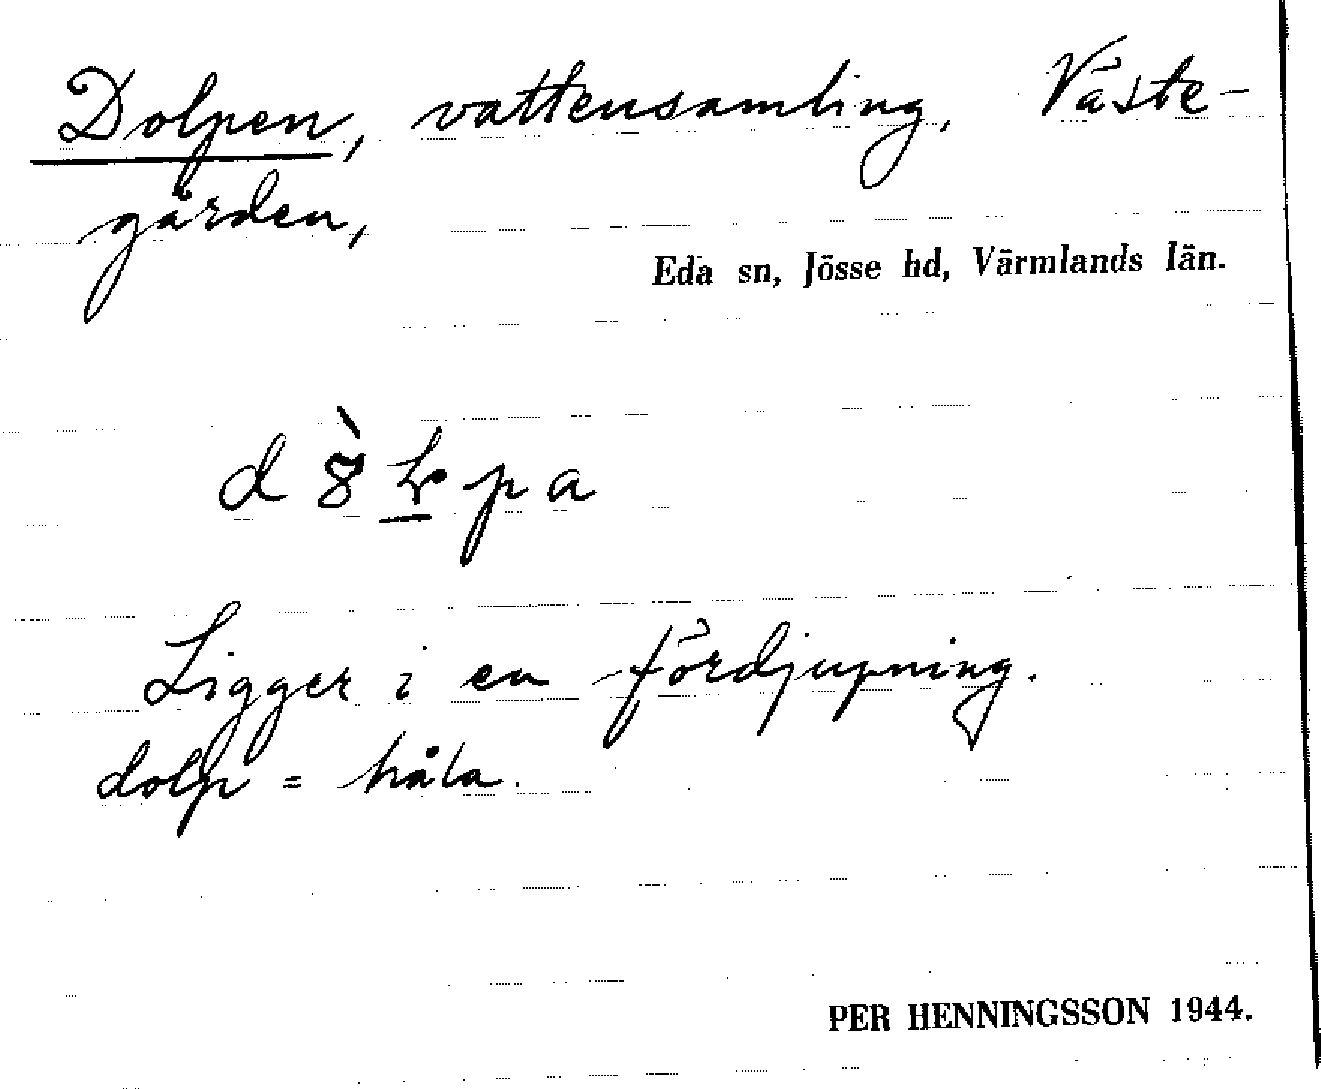 Dolpen, vattensamling, Väste-
gården,
Eda sn, Jösse hd, Värmlands län.
Ligger i en fördjupning.
dolp = håla.
PER HENNINGSSON 1944.